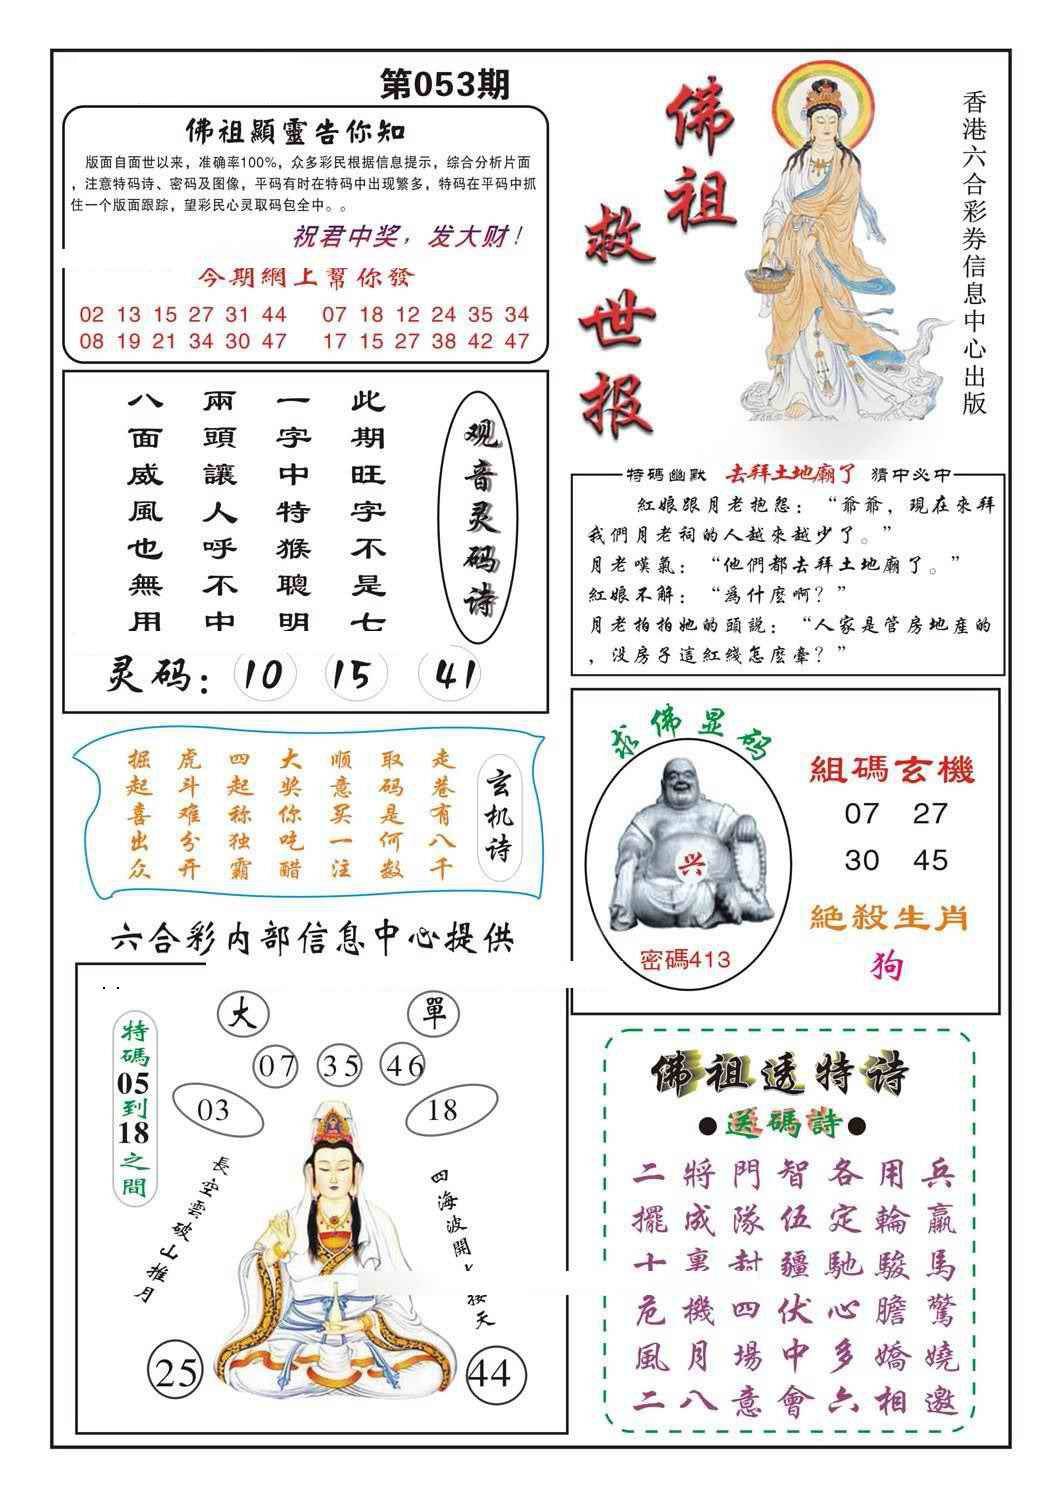 第053期
佛祖顯靈告你知
版面自面世以来，准确率100%，众多彩民根据信息提示，综合分析片面
，注意特码诗、密码及图像，平码有时在特码中出现繁多，特码在平码中抓
住一个版面跟踪，望彩民心灵取码包全中。。
祝君中奖，发大财！
今期網上幫你發
02 13 15 27 31 44 07 18 12 24 35 34
08 19 21 34 30 47 17 15 27 38 42 47
佛祖
救世报
香港六合彩券信息中心出版
观音灵码诗
此期旺字不是七
一字中特猴聰明
兩頭讓人呼不中
八面威風也無用
灵码：10 15 41
特碼幽默 去拜土地廟了 猜中必中
紅娘跟月老抱怨：“爺爺，現在來拜
我們月老祠的人越來越少了。”
月老嘆氣：“他們都去拜土地廟了。”
紅娘不解：“爲什麼啊？”
月老拍拍她的頭説：“人家是管房地産的
，没房子這紅綫怎麽牽？”
玄机诗
走巷有八千
取码是何数
顺意买一注
大奖你吃醋
四起称独霸
虎斗难分开
掘起喜出众
求佛显码
兴
密碼413
組碼玄機
07 27
30 45
絕殺生肖
狗
六合彩内部信息中心提供
特碼05到18之間
大 單
07 35 46
03 18
長空雲破山推月
四海波開 接天
25 44
佛祖透特诗
●送碼詩●
二將門智各用兵
擺成隊伍定輪贏
十裏封疆馳駿馬
危機四伏心膽驚
風月場中多嬌嬈
二八意會六相邀